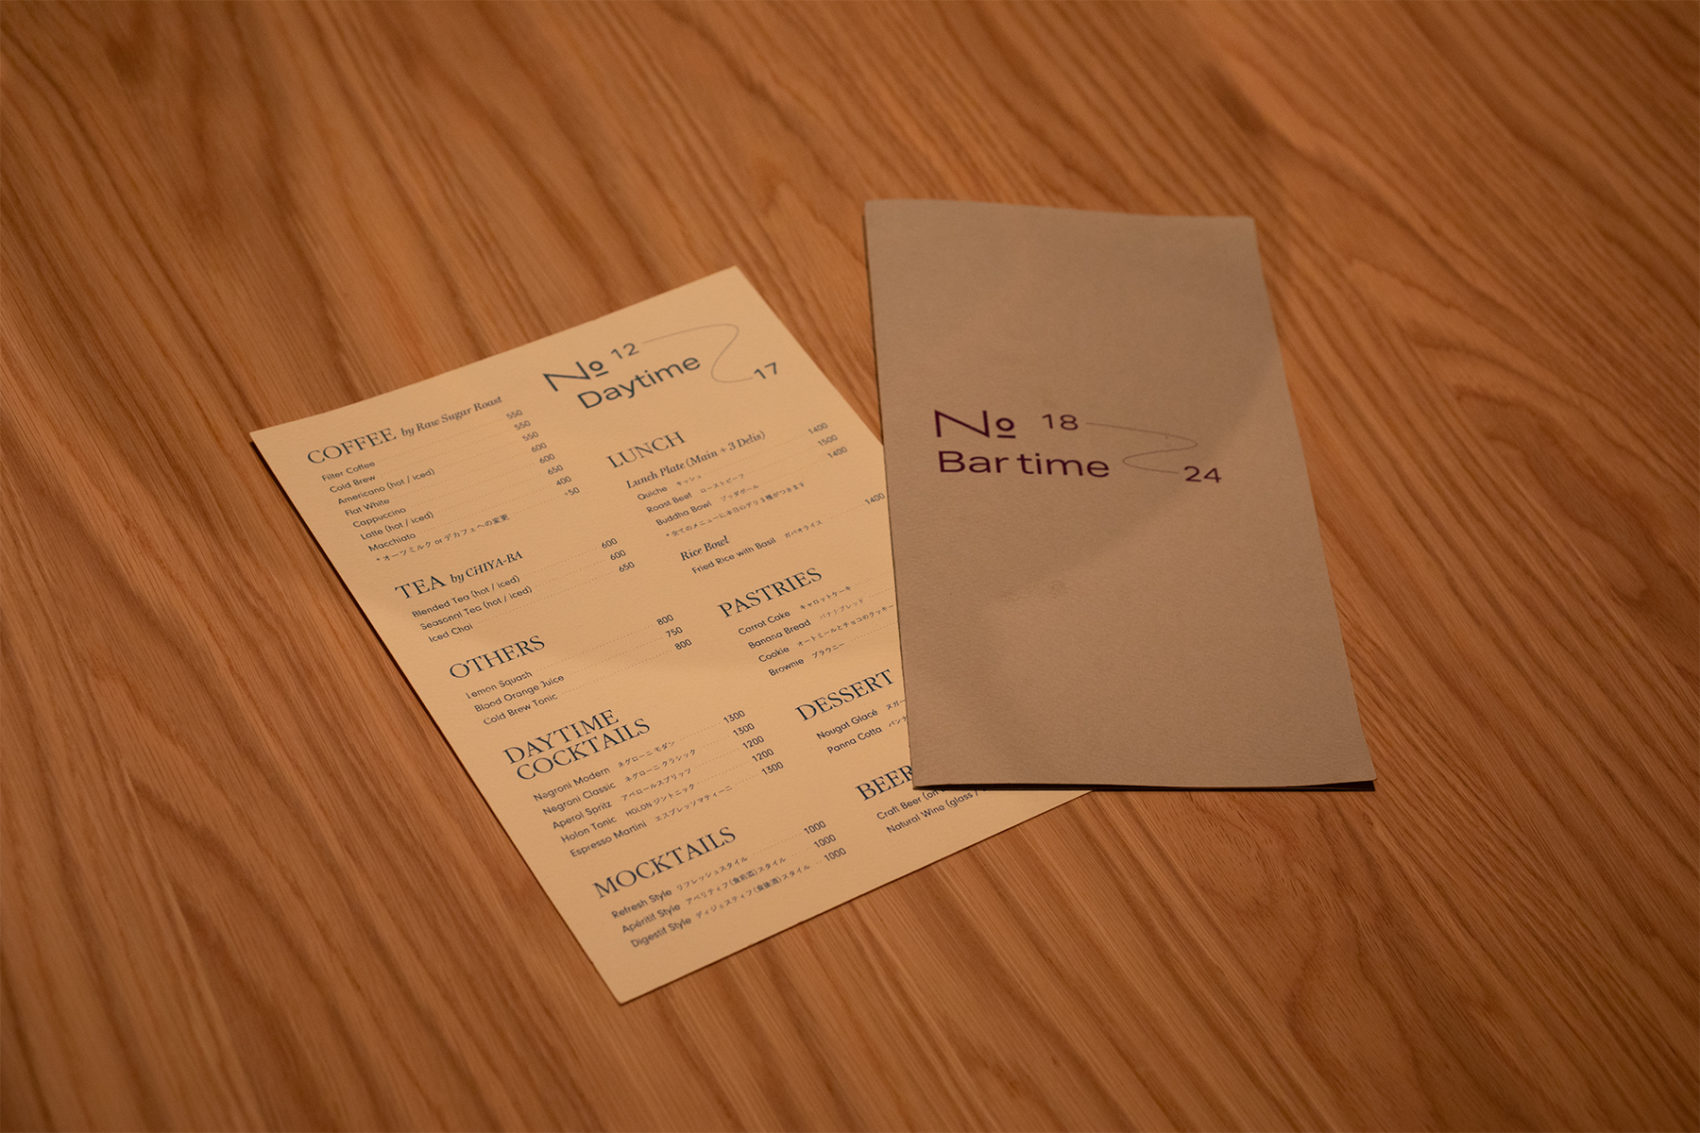 No 12
Daytime
17
COFFEE by Raw Sugar Roast
Filter Coffee 550
Cold Brew 550
Americano (hot / iced) 550
Flat White 600
Cappuccino 600
Latte (hot / iced) 650
Macchiato 400
* オーツミルク or デカフェへの変更 +50
TEA by CHIYA-BA
Blended Tea (hot / iced) 600
Seasonal Tea (hot / iced) 600
Iced Chai 650
OTHERS
Lemon Squash 800
Blood Orange Juice 750
Cold Brew Tonic 800
DAYTIME
COCKTAILS
Negroni Modern ネグローニ モダン 1300
Negroni Classic ネグローニ クラシック 1300
Aperol Spritz アペロールスプリッツ 1200
Holon Tonic HOLONジントニック 1200
Espresso Martini エスプレッソマティーニ 1300
MOCKTAILS
Refresh Style リフレッシュスタイル 1000
Apéritif Style アペリティフ(食前酒)スタイル 1000
Digestif Style ディジェスティフ(食後酒)スタイル 1000
LUNCH
Lunch Plate (Main + 3 Delis)
Quiche キッシュ 1400
Roast Beef ローストビーフ 1500
Buddha Bowl ブッダボール 1400
* 全てのメニューに本日のデリ3種がつきます
Rice Bowl
Fried Rice with Basil ガパオライス 1400
PASTRIES
Carrot Cake キャロットケーキ
Banana Bread バナナブレッド
Cookie オートミールとチョコのクッキー
Brownie ブラウニー
DESSERT
Nougat Glacé ヌガー
Panna Cotta パンナ
BEER
Craft Beer (on
Natural Wine (glass /
No 18
Bar time
24